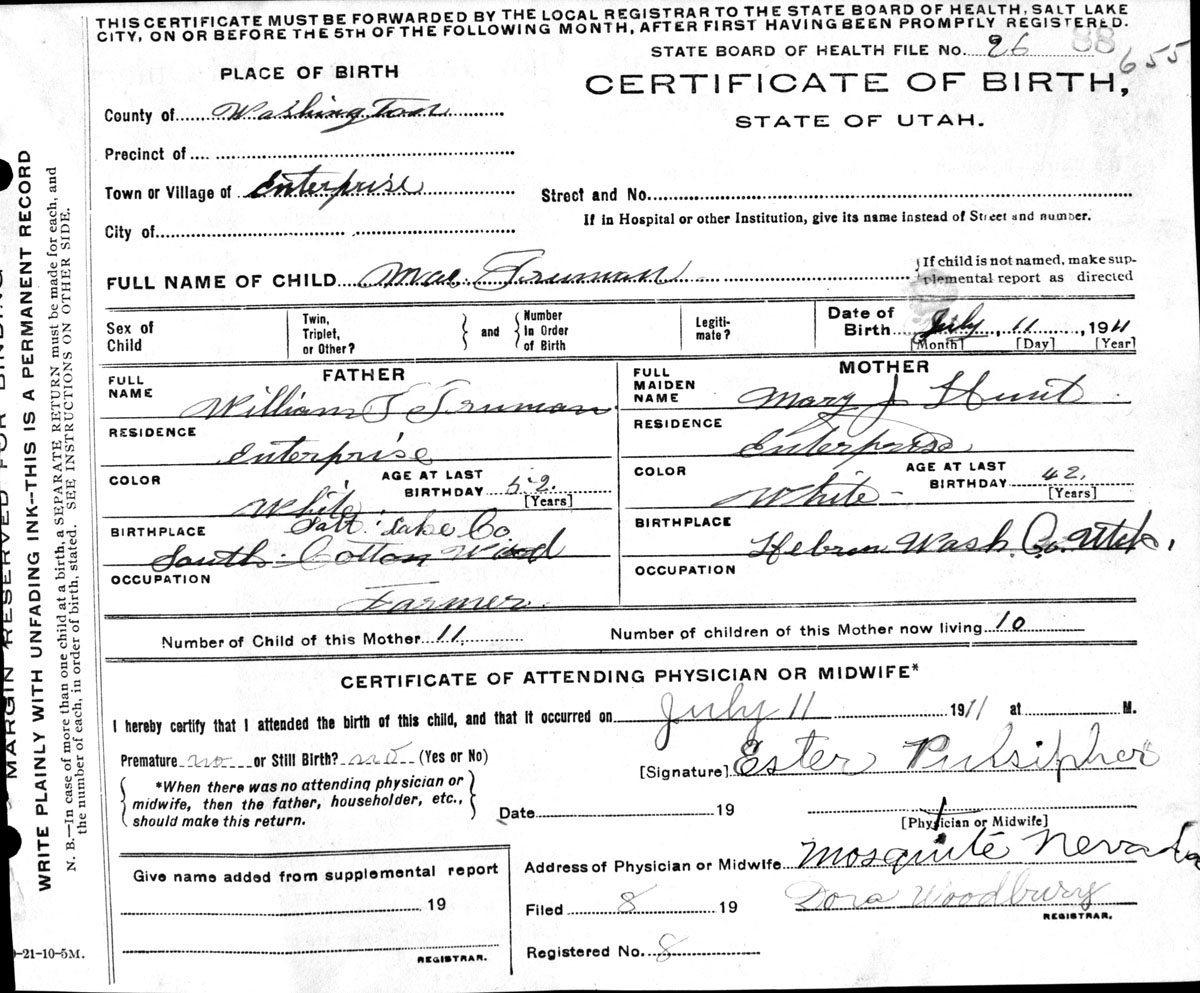 THIS CERTIFICATE MUST BE FORWARDED BY THE LOCAL REGISTRAR TO THE STATE BOARD OF HEALTH, SALT LAKE
CITY, ON OR BEFORE THE 5TH OF THE FOLLOWING MONTH, AFTER FIRST HAVING BEEN PROMPTLY REGISTERED.
STATE BOARD OF HEALTH FILE No. 26 88 655
PLACE OF BIRTH
CERTIFICATE OF BIRTH,
STATE OF UTAH.
County of Washington
Precinct of
Town or Village of Enterprise
Street and No.
If in Hospital or other Institution, give its name instead of Street and number.
City of
FULL NAME OF CHILD Mae Truman
If child is not named, make sup-
plemental report as directed
Sex of
Child
Twin,
Triplet,
or Other?
and
Number
in Order
of Birth
Legiti-
mate?
Date of
Birth July, 11, 1911
[Month] [Day] [Year]
FATHER
FULL
NAME
William T Truman
RESIDENCE
Enterprise
COLOR
White
AGE AT LAST
BIRTHDAY 52.
[Years]
BIRTHPLACE
Salt Lake Co.
South Cotton Wood
OCCUPATION
Farmer.
MOTHER
FULL
MAIDEN
NAME
Mary J Hunt
RESIDENCE
Enterprise
COLOR
White
AGE AT LAST
BIRTHDAY 42,
[Years]
BIRTHPLACE
Hebron Wash. Co. Utah,
OCCUPATION
Number of Child of this Mother 11
Number of children of this Mother now living 10
CERTIFICATE OF ATTENDING PHYSICIAN OR MIDWIFE*
I hereby certify that I attended the birth of this child, and that it occurred on July 11 1911 at M.
Premature no or Still Birth? no (Yes or No)
[Signature] Ester Pulsipher
*When there was no attending physician or
midwife, then the father, householder, etc.,
should make this return.
Date 19
[Physician or Midwife]
Address of Physician or Midwife Mosquite Nevada
Give name added from supplemental report
19
REGISTRAR.
Filed 8 19
Dora Woodbury
REGISTRAR.
Registered No. 8
-21-10-5M.
MARGIN RESERVED FOR BINDING
WRITE PLAINLY WITH UNFADING INK--THIS IS A PERMANENT RECORD
N. B.—In case of more than one child at a birth, a SEPARATE RETURN must be made for each, and
the number of each, in order of birth, stated. SEE INSTRUCTIONS ON OTHER SIDE.